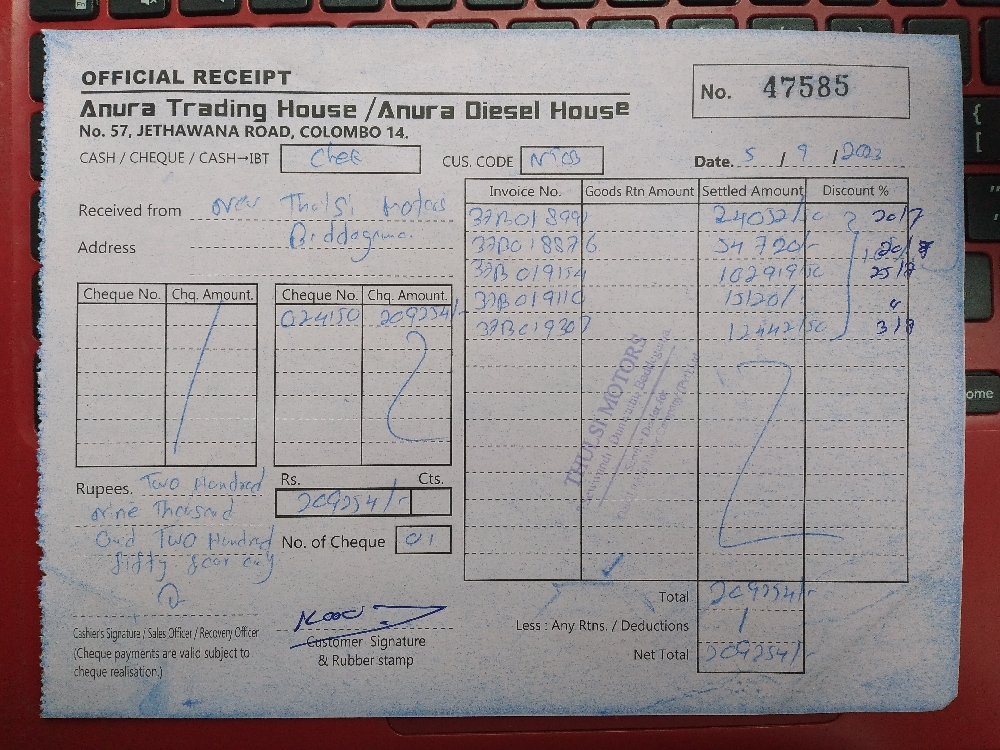 OFFICIAL RECEIPT
Anura Trading House /Anura Diesel House
No. 57, JETHAWANA ROAD, COLOMBO 14.
No. 47585
CASH / CHEQUE / CASH→IBT Chek
CUS. CODE
Date. 5 / 9 / 2023
Received from Thulsi Motors
Address Baddagama
Cheque No. Chq. Amount.
Cheque No. Chq. Amount.
024150 209254/-
Invoice No. Goods Rtn Amount Settled Amount Discount %
37B018991 20/7
37B018876 54720/-
37B019154 102919/50 25/7
37B019110 15120/-
37B019307 12442/50 3/8
THULSI MOTORS
Rupees. Two Hundred
nine Thousand
and Two Hundred
fifty four only
Rs. Cts.
209254/-
No. of Cheque 01
Total 209254/-
Less : Any Rtns. / Deductions
Net Total 209254/-
Cashier's Signature / Sales Officer / Recovery Officer
(Cheque payments are valid subject to
cheque realisation.)
Customer Signature
& Rubber stamp